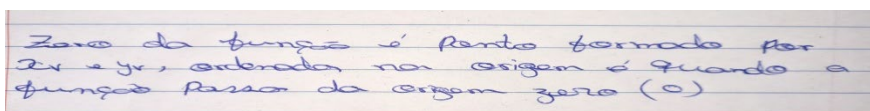 Zero da função é Ponto formado por
xv e yv, ordenada na origem é quando a
função Passa da origem zero (0)